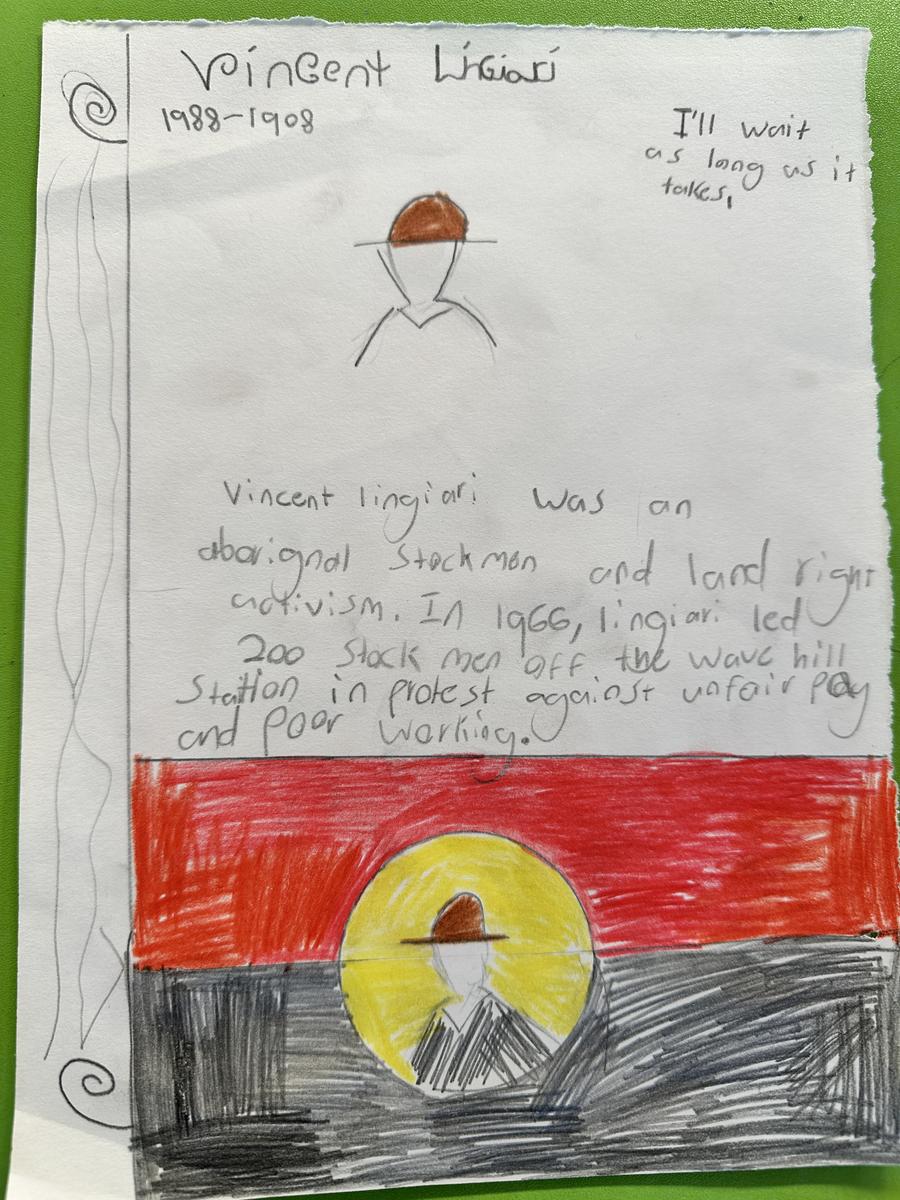 Vincent Lingiari
1988-1908
I'll wait
as long as it
takes,
Vincent lingiari was an
aborignal Stockmen and land right
activism. In 1966, lingiari led
200 Stock men off the wave hill
Station in protest against unfair pay
and Poor working.